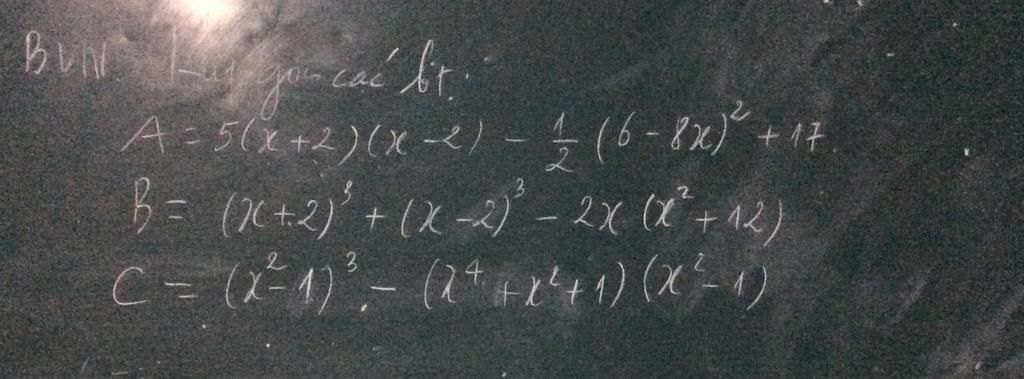 BVN: Rút gọn các bt:
A = 5(x+2)(x-2) - 1/2 (6-8x)² + 17.
B = (x+2)³ + (x-2)³ - 2x (x²+12)
C = (x²-1)³ - (x⁴+x²+1)(x²-1)